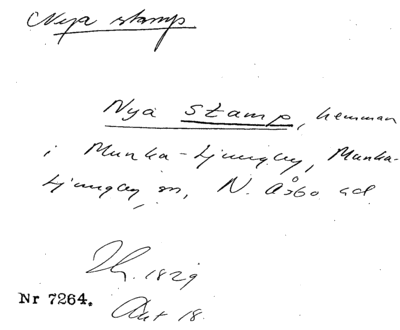 Nya stamp
Nya stamp, hemman
i Munka-Ljungby, Munka-
Ljungby sn, N. Åsbo hd
Nr 7264.